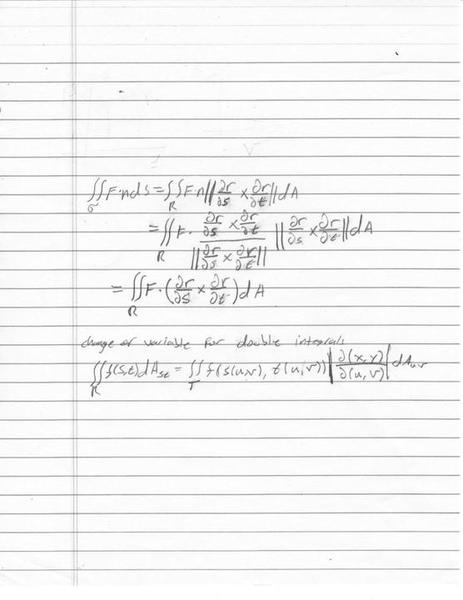 ∬_σ F·n dS = ∬_R F·n ||∂r/∂s × ∂r/∂t|| dA
= ∬_R F · (∂r/∂s × ∂r/∂t)/||∂r/∂s × ∂r/∂t|| ||∂r/∂s × ∂r/∂t|| dA
= ∬_R F · (∂r/∂s × ∂r/∂t) dA
change of variable for double integrals
∬_R f(s,t) dA_st = ∬_T f(s(u,v), t(u,v)) |∂(x,y)/∂(u,v)| dA_uv